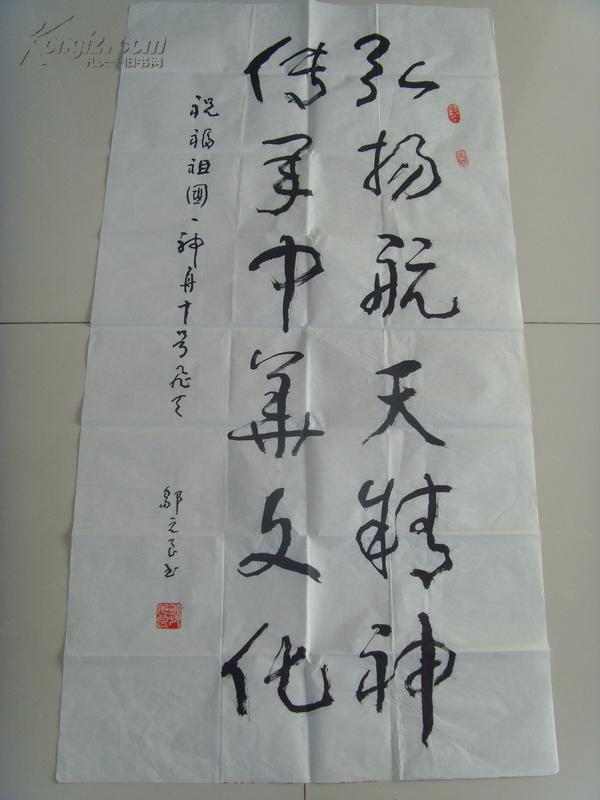 弘扬航天精神
传承中华文化
祝福祖國神舟十号飞天
邬元良书
Kongfz.com
孔夫子旧书网